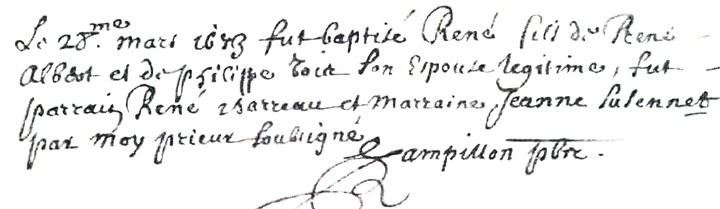 Le 28.me mars 1683 fut baptisé René fils de René
Albert et de philippe son Espouse legitime, fut
parrain René et marraine Jeanne
par moy prieur soubsigné
Campillon pbre.